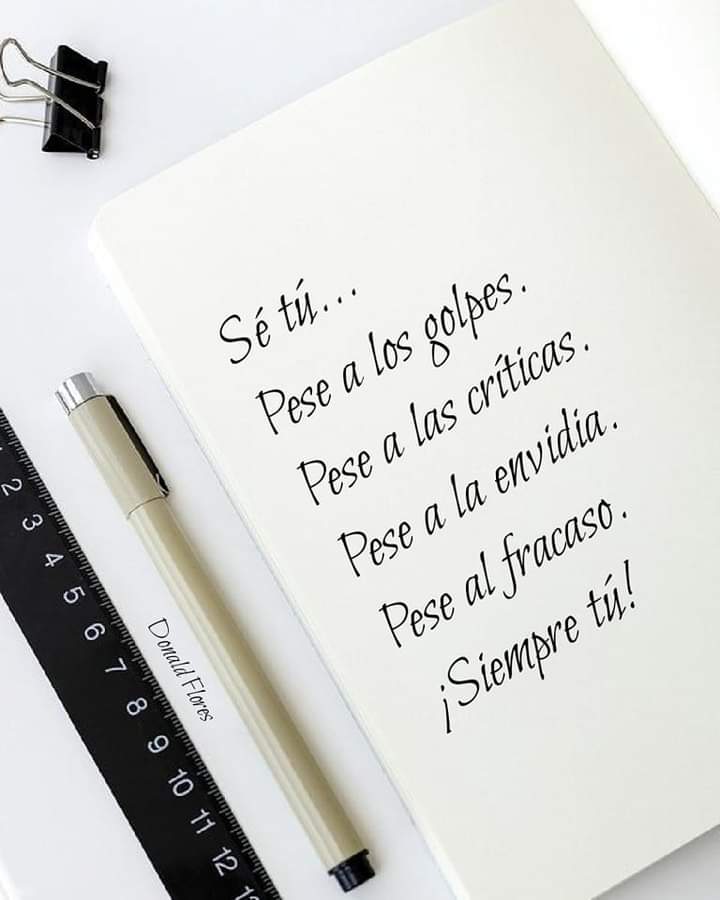 Sé tú...
Pese a los golpes.
Pese a las críticas.
Pese a la envidia.
Pese al fracaso.
¡Siempre tú!
Donald Flores
2
3
4
5
6
7
8
9
10
11
12